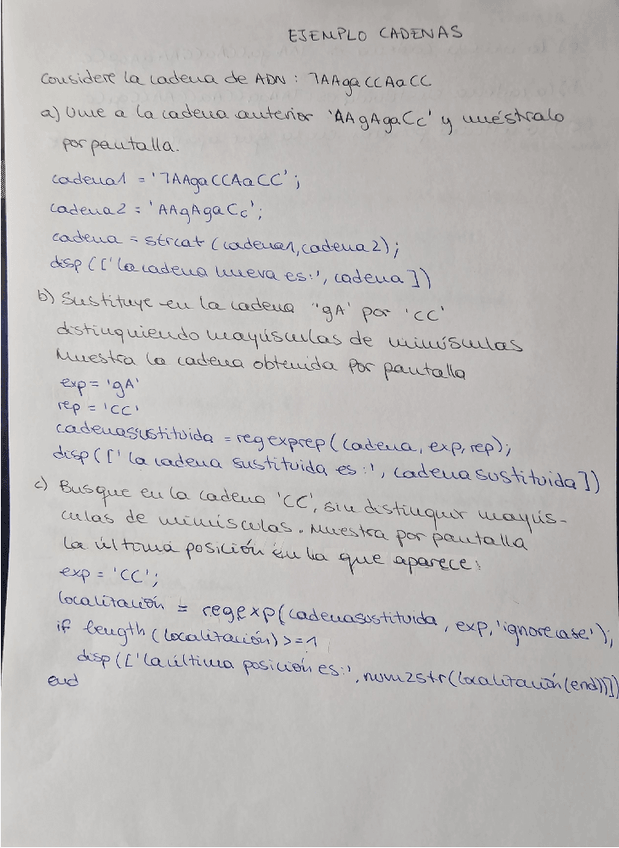 EJEMPLO CADENAS
Considere la cadena de ADN: TAAgaCCAaCC
a) Une a la cadena anterior 'AAgAgaCc' y muéstralo
por pantalla.
cadena1 = 'TAAgaCCAaCC';
cadena2 = 'AAgAgaCc';
cadena = strcat (cadena1, cadena2);
disp (['La cadena nueva es:', cadena])
b) Sustituye en la cadena 'gA' por 'CC'
distinguiendo mayúsculas de minúsculas
Muestra la cadena obtenida por pantalla
exp = 'gA'
rep = 'CC'
cadenasustituida = regexprep (cadena, exp, rep);
disp (['La cadena sustituida es:', cadenasustituida])
c) Busque en la cadena 'CC', sin distinguir mayús-
culas de minúsculas. Muestra por pantalla
la última posición en la que aparece:
exp = 'CC';
localización = regexp(cadenasustituida, exp, 'ignorecase');
if length (localización) >= 1
disp (['la última posición es:', num2str(localización(end))])
end